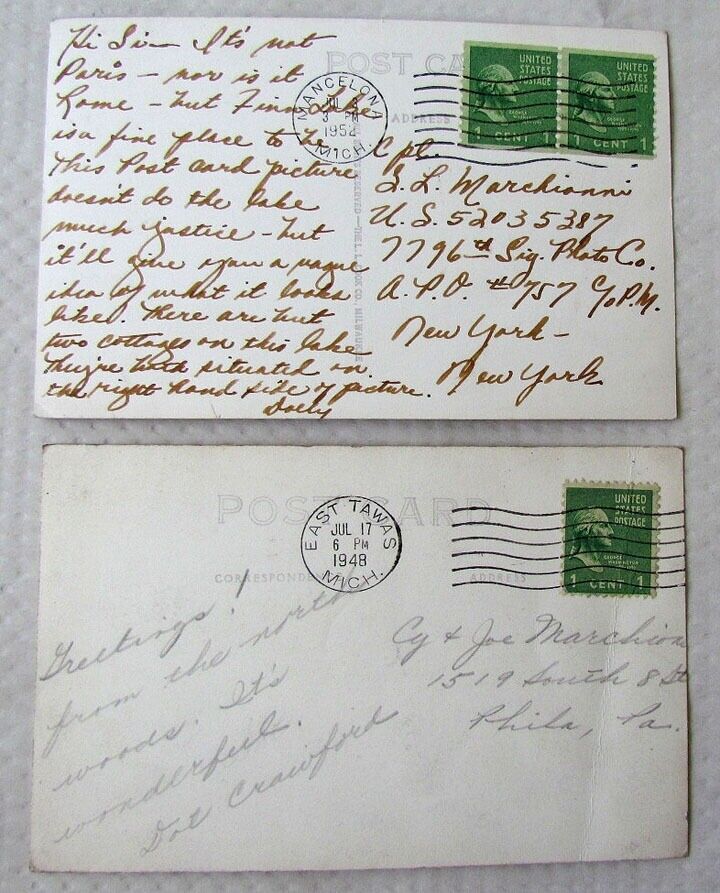 Hi Si — It's not
Paris — nor is it
Rome — but Finn Lake
is a fine place to be
This Post card picture
doesn't do the lake
much justice — but
it'll give you a vague
idea of what it looks
like. There are but
two cottages on this lake
They're both situated on
the right hand side of picture.
Dolly
POST CA
ADDRESS
MANCELONA
JUL
3 PM
1952
MICH.
UNITED
STATES
POSTAGE
1 CENT 1
UNITED
STATES
POSTAGE
1 CENT 1
Cpl.
S. L. Marchionni
U.S. 52035387
7796th Sig. Photo Co.
A.P.O. # 757 c/o P.M.
New York —
New York
RESERVED — THE L. L. COOK CO. MILWAUKEE
POST CARD
CORRESPONDENCE
ADDRESS
EAST TAWAS
JUL 17
6 PM
1948
MICH.
UNITED
STATES
POSTAGE
GEORGE
WASHINGTON
1 CENT 1
Greetings!
from the north
woods. It's
wonderful.
Dot Crawford
Cy & Joe Marchion
1519 South 8 St
Phila, Pa.